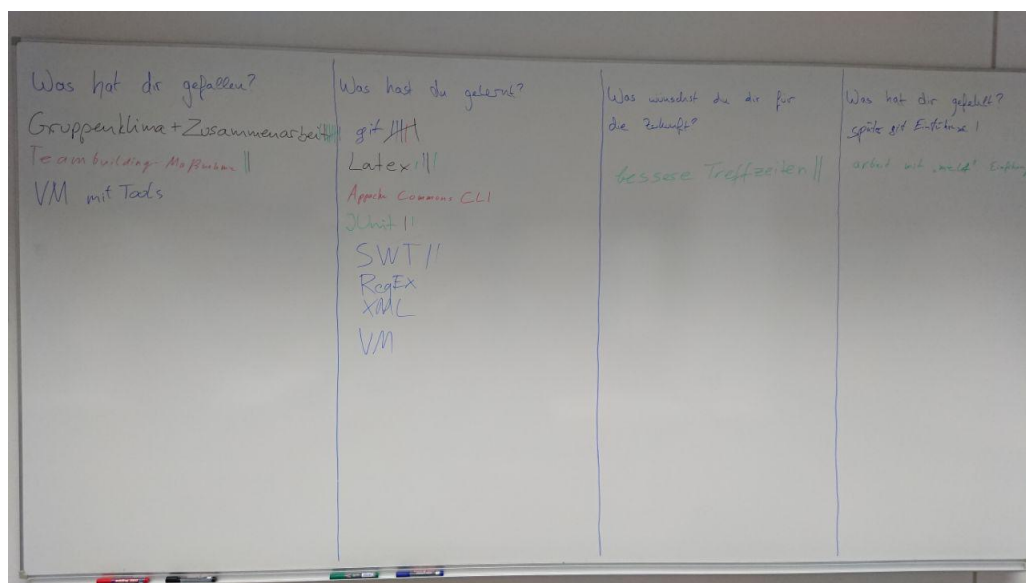 Was hat dir gefallen?
Gruppenklima + Zusammenarbeit
Teambuilding-Maßnahmen ||
VM mit Tools
Was hast du gelernt?
git ||||
Latex ||||
Appache Commons CLI
JUnit ||
SWT ||
RegEx
XML
VM
Was wünschst du dir für
die Zukunft?
bessere Treffzeiten ||
Was hat dir gefehlt?
späte git Einführung |
arbeit mit